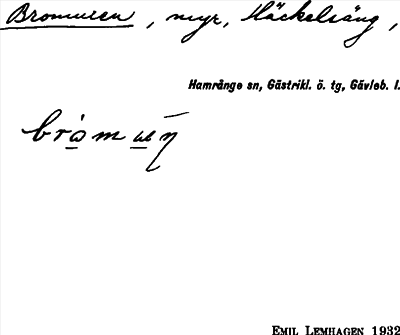 Bromuren, myr, Häckelsäng,
Hamrånge sn, Gästrikl. ö. tg, Gävleb. l.
EMIL LEMHAGEN 1932